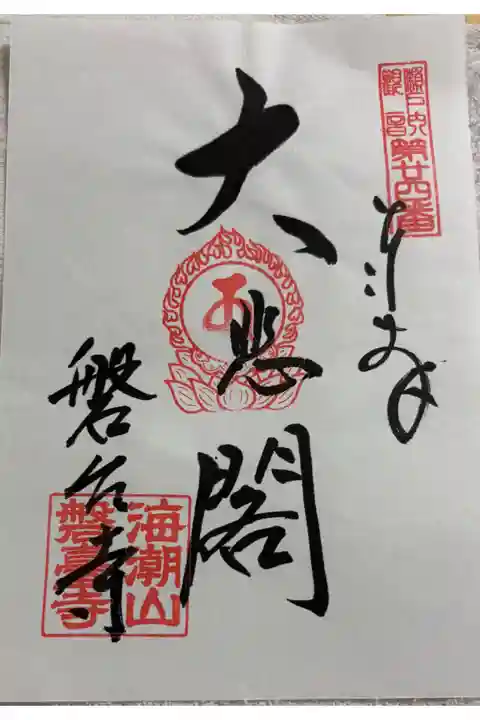 瀬戸内観音第廿四番
奉拝
大悲閣
磐台寺
海潮山
磐臺寺